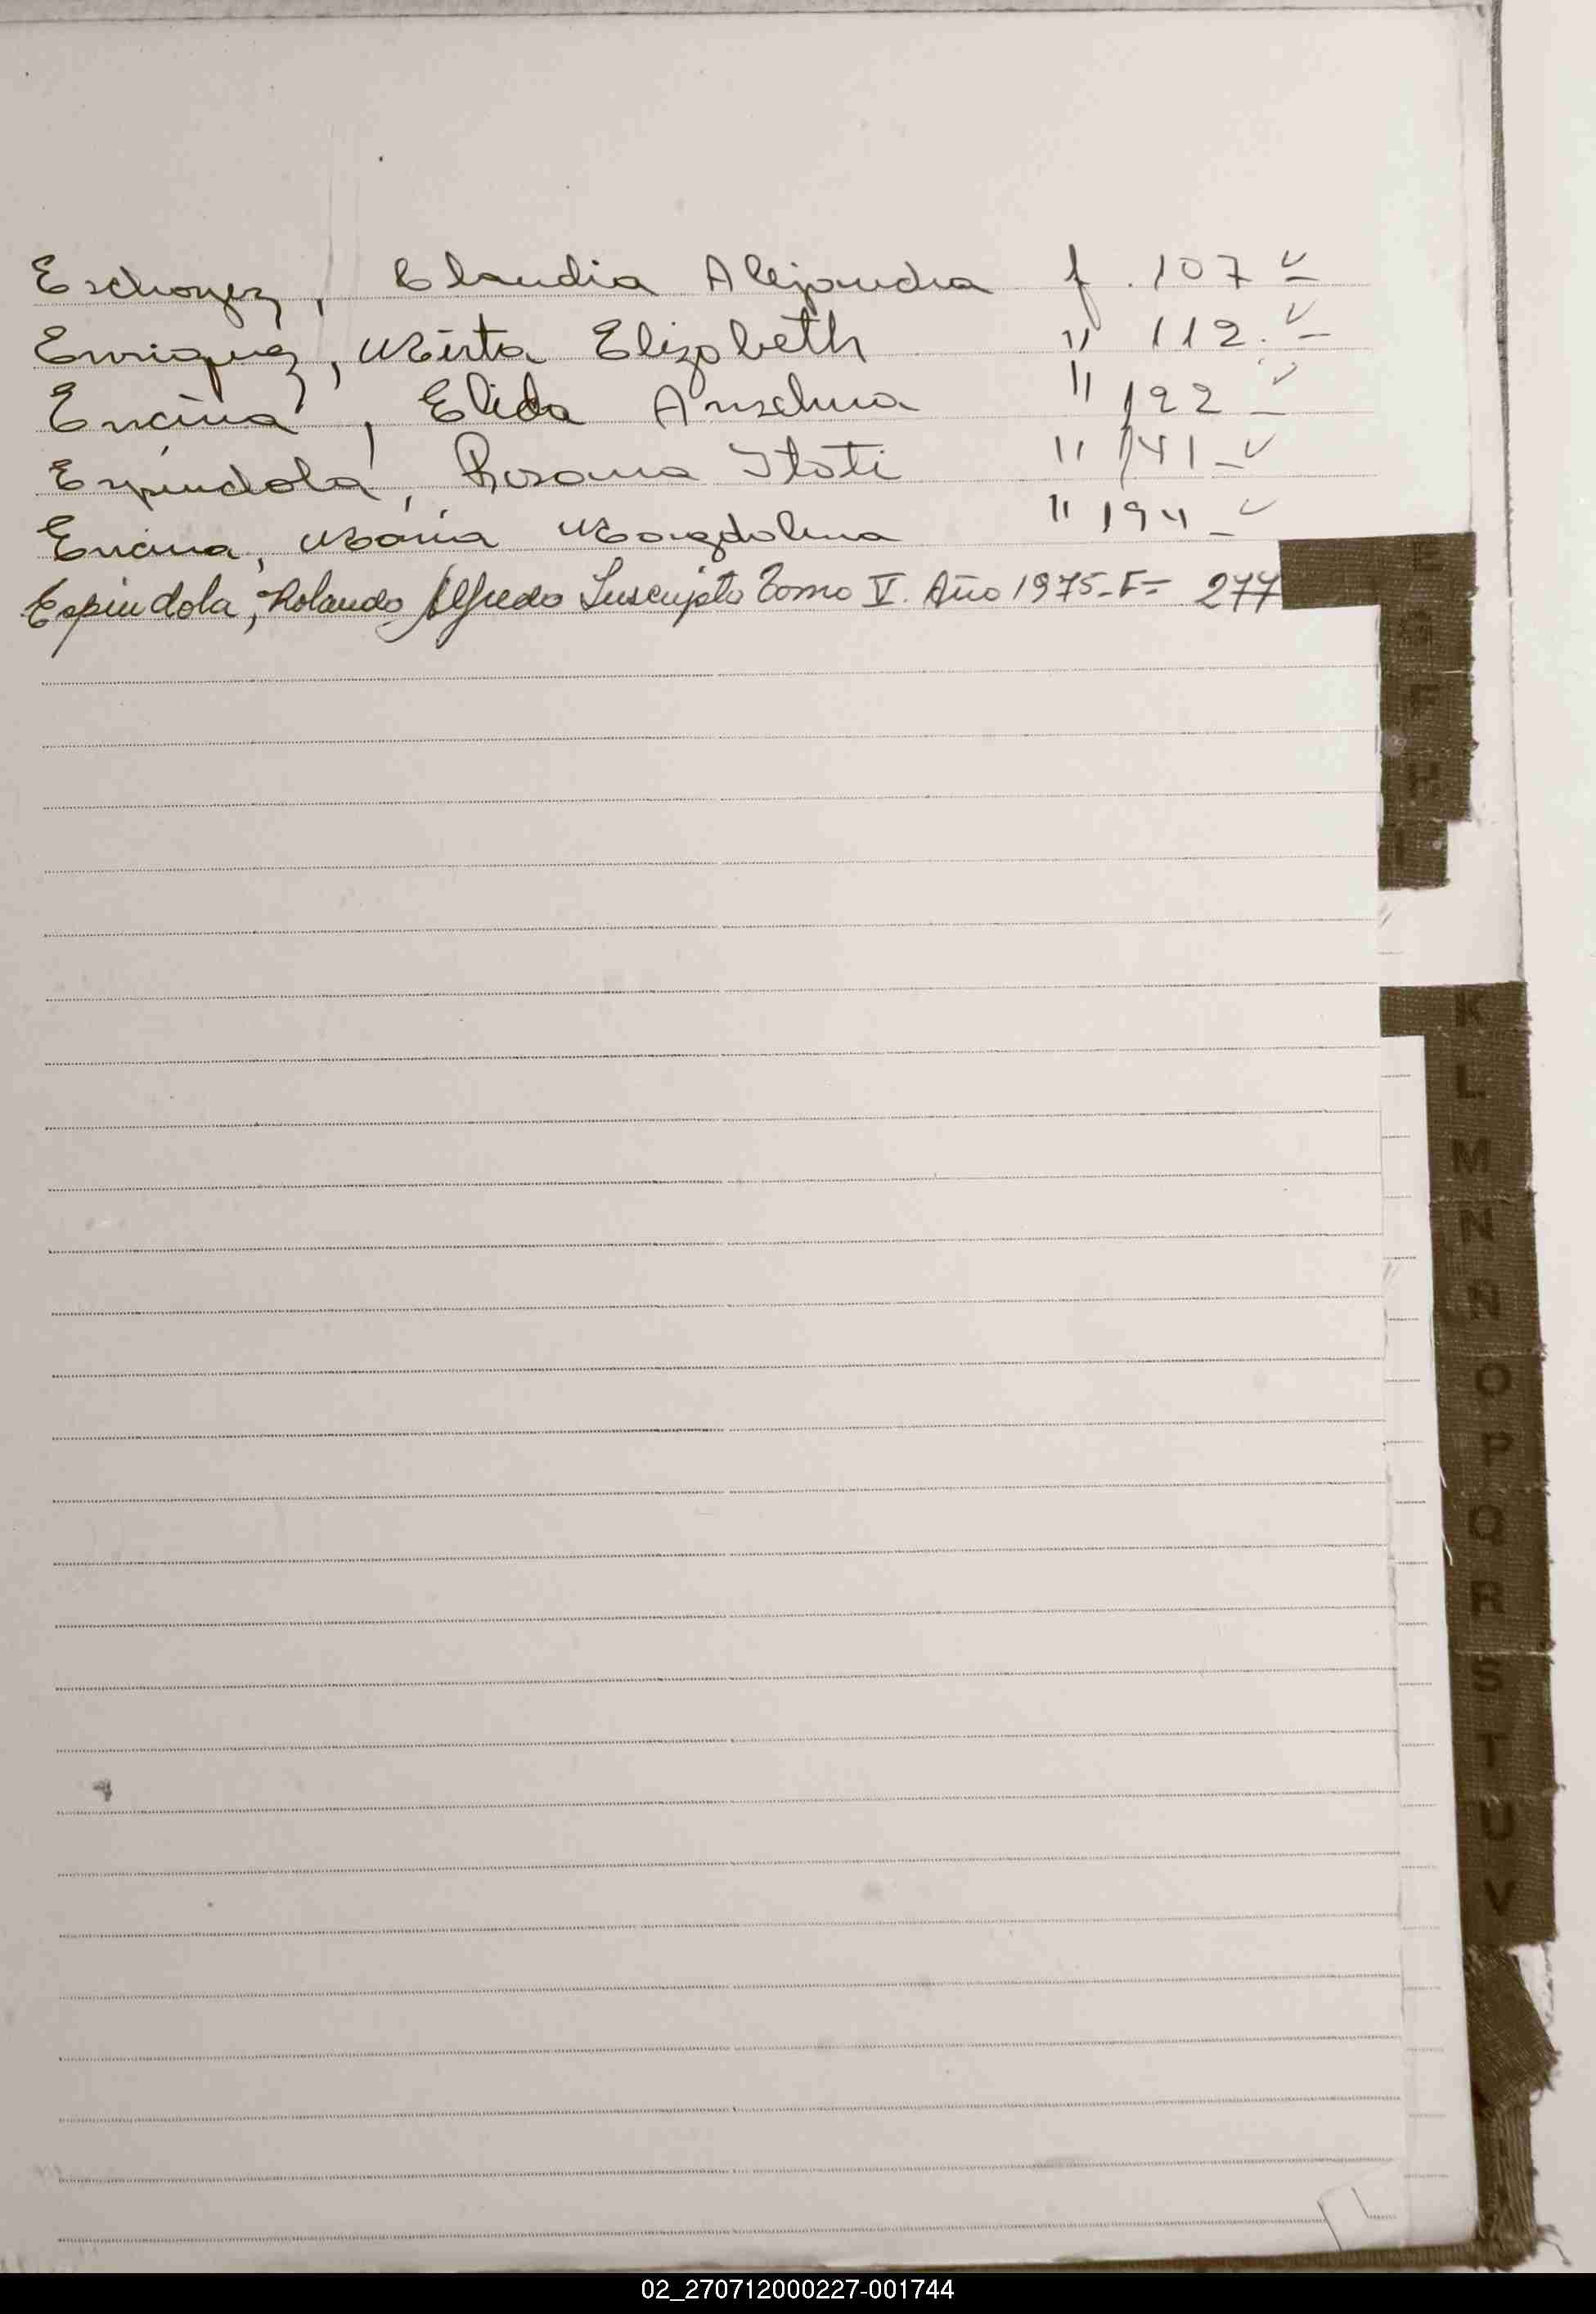 Eschoyez, Claudia Alejandra f. 107 ✓
Enriquez, Mirta Elizabeth " 112. ✓
Encina, Elida Anselma " 122 ✓
Espíndola, Rosana Itatí " 141 ✓
Encina, María Magdalena " 194 ✓
Espíndola, Rolando Alfredo Inscripto Tomo V. Año 1975-F= 277
E
G
F
H
I
K
L
M
N
N
O
P
Q
R
S
T
U
V
02_270712000227-001744